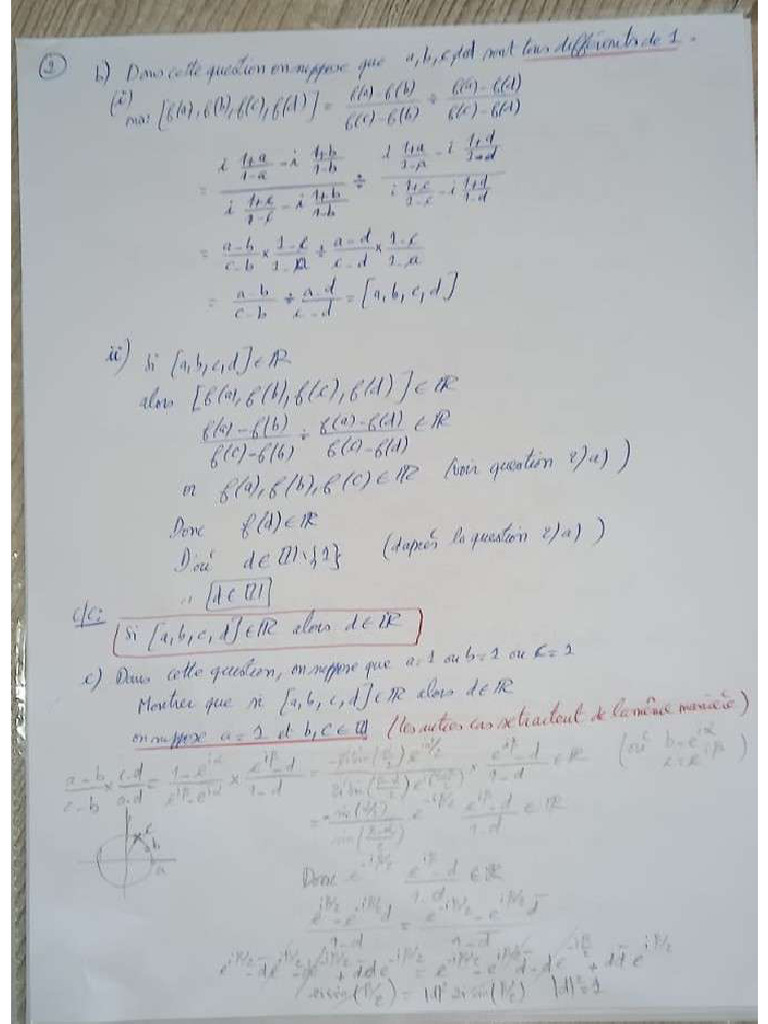 ②
b) Dans cette question on suppose que a, b, c, d sont tous différents de 1.
(i)
mai [f(a), f(b), f(c), f(d)] = \frac{f(a)-f(b)}{f(c)-f(b)} ÷ \frac{f(a)-f(d)}{f(c)-f(d)}
= \frac{i\frac{1+a}{1-a} - i\frac{1+b}{1-b}}{i\frac{1+c}{1-c} - i\frac{1+b}{1-b}} ÷ \frac{i\frac{1+a}{1-a} - i\frac{1+d}{1-d}}{i\frac{1+c}{1-c} - i\frac{1+d}{1-d}}
= \frac{a-b}{c-b} × \frac{1-c}{1-a} ÷ \frac{a-d}{c-d} × \frac{1-c}{1-a}
= \frac{a-b}{c-b} ÷ \frac{a-d}{c-d} = [a, b, c, d]
ii) Si [a, b, c, d] ∈ ℝ
alors [f(a), f(b), f(c), f(d)] ∈ ℝ
\frac{f(a)-f(b)}{f(c)-f(b)} ÷ \frac{f(a)-f(d)}{f(c)-f(d)} ∈ ℝ
or f(a), f(b), f(c) ∈ ℝ (voir question 2)a))
Donc f(d) ∈ ℝ
D'où d ∈ 𝕌\{1} (d'après la question 2)a))
d ∈ 𝕌
c/c: Si [a, b, c, d] ∈ ℝ alors d ∈ ℝ
c) Dans cette question, on suppose que a=1 ou b=1 ou c=1
Montrer que si [a, b, c, d] ∈ ℝ alors d ∈ ℝ
on suppose a=1 et b, c ∈ 𝕌 (les autres cas se traitent de la même manière)
\frac{a-b}{c-b} × \frac{c-d}{a-d} = \frac{1-e^{iα}}{e^{iβ}-e^{iα}} × \frac{e^{iβ}-d}{1-d} = × \frac{e^{iβ}-d}{1-d} ∈ ℝ (où b=e^{iα} c=e^{iβ})
e^{-iβ/2} \frac{e^{iβ}-d}{1-d} ∈ ℝ
c
b
a
Donc e^{-iβ/2} \frac{e^{iβ}-d}{1-d} ∈ ℝ
\frac{e^{iβ/2}-e^{-iβ/2}d}{1-d} =
2i sin(β/2) = |d|² 2i sin(β/2) |d|²=1